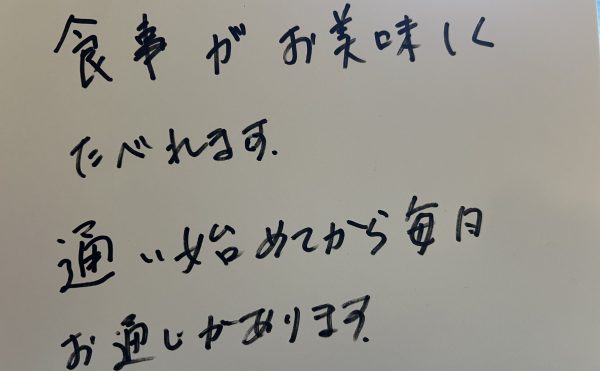 食事がお美味しく
たべれます.
通い始めてから毎日
お通じがあります.